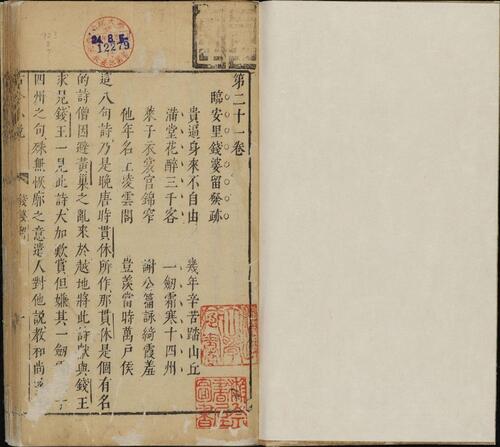 第二十一卷
臨安里錢婆留發跡
貴逼身來不自由　幾年辛苦踏山丘
滿堂花醉三千客　一劒霜寒十四州
萊子衣裳宮錦窄　謝公篇詠綺霞羞
他年名上凌雲閣　豈羨當時萬戶侯
這八句詩乃是晚唐時貫休所作那貫休是個有名
的詩僧因避黃巢之亂來於越地將此詩獻與錢王
求見錢王一見此詩大加歎賞但嫌其一劒
四州之句殊無恢廓之意遣人對他說教和尚
12279